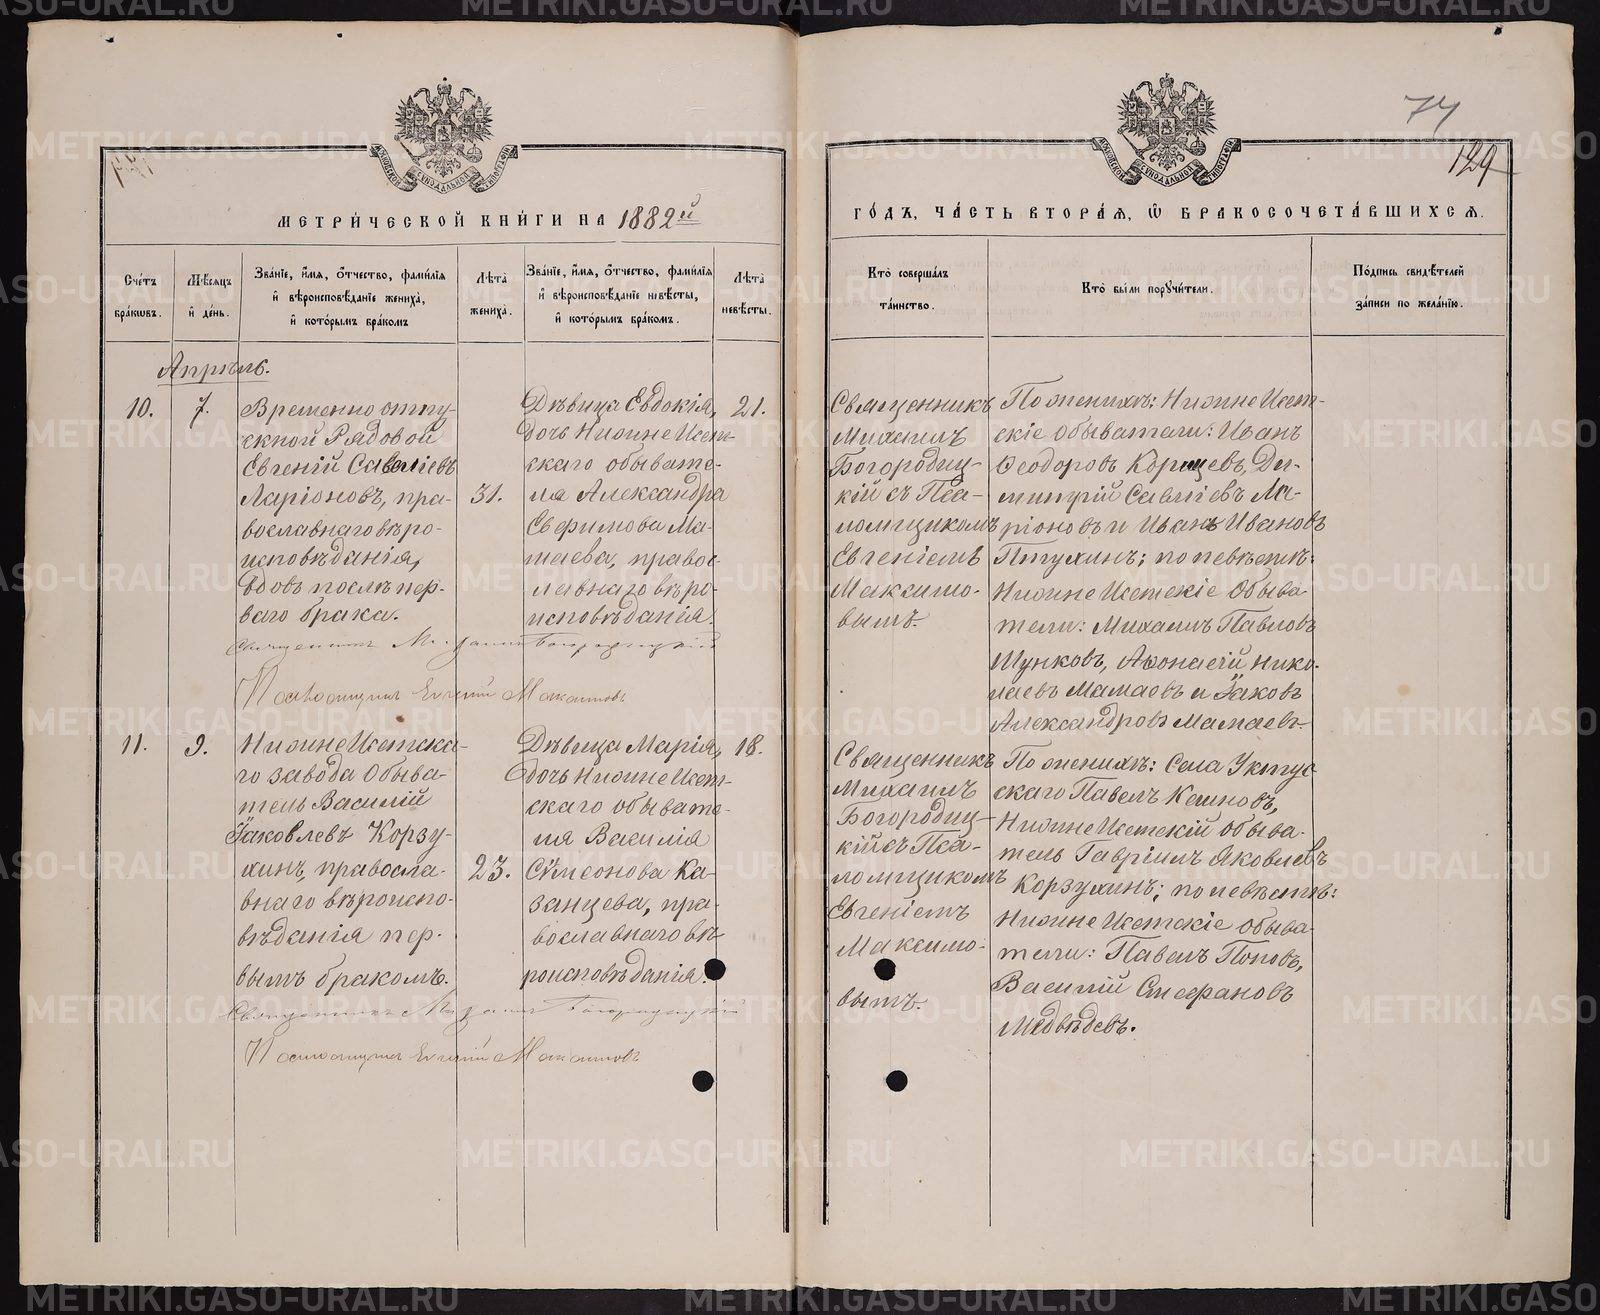 74
129
МЕТРИЧЕСКОЙ КНИГИ НА 1882й
ГОДЪ, ЧАСТЬ ВТОРАЯ, Ѡ БРАКОСОЧЕТАВШИХСЯ.
Счетъ браковъ.
Мѣсяцъ и день.
Званіе, имя, отчество, фамилія
и вѣроисповѣданіе жениха,
и которымъ бракомъ
Лѣта жениха.
Званіе, имя, отчество, фамилія
и вѣроисповѣданіе невѣсты,
и которымъ бракомъ.
Лѣта невѣсты.
Кто совершалъ
таинство.
Кто были поручители.
Подпись свидѣтелей
записи по желанію.
Апрѣль.
10.
7.
Временно отпу-
скной Рядовой
Евгеній Савеліевъ
Ларіоновъ, пра-
вославнаго вѣро-
исповѣданія,
вдовъ послѣ пер-
ваго брака.
31.
Дѣвица Евдокія,
дочь Нижне Исет-
скаго обывате-
ля Александра
Ефимова Ма-
маева, правос-
лавнаго вѣро-
исповѣданія.
21.
Священникъ
Михаилъ
Богородиц-
кій съ Пса-
ломщикомъ
Евгеніемъ
Максимо-
вымъ.
По женихѣ: Нижне Исет-
скіе обыватели: Иванъ
Ѳеодоровъ Корщевъ, Ди-
митрій Савлиевъ Ла-
ріоновъ и Иванъ Ивановъ
Птухинъ; по невѣстѣ:
Нижне Исетскіе Обыва
тели: Михаилъ Павловъ
Шунковъ, Аѳонасій Нико-
лаевъ Мамаевъ и Іаковъ
Александровъ Мамаевъ.
Священникъ Михаилъ Богородицкій
Псаломщикъ Евгеній Максимовъ
11.
9.
Нижне Исетска-
го завода Обыва-
тель Василій
Іаковлевъ Корзу-
хинъ, правосла-
внаго вѣроиспо-
вѣданія пер-
вымъ бракомъ.
23.
Дѣвица Марія,
дочь Нижне Исет-
скаго обывате-
ля Василія
Сѵмеонова Ка-
занцева, пра-
вославнаго вѣ-
роисповѣданія.
18.
Священникъ
Михаилъ
Богородиц-
кій съ Пса-
ломщикомъ
Евгеніемъ
Максимо-
вымъ.
По женихѣ: Села Уктус
скаго Павелъ
Нижне Исетскій обыва-
тель Гавріилъ Яковлевъ
Корзухинъ; по невѣстѣ:
Нижне Исетскіе обыва-
тели: Павелъ Поповъ,
Василій Стефановъ
Медвѣдевъ.
Священникъ Михаилъ Богородицкій
Псаломщикъ Евгеній Максимовъ